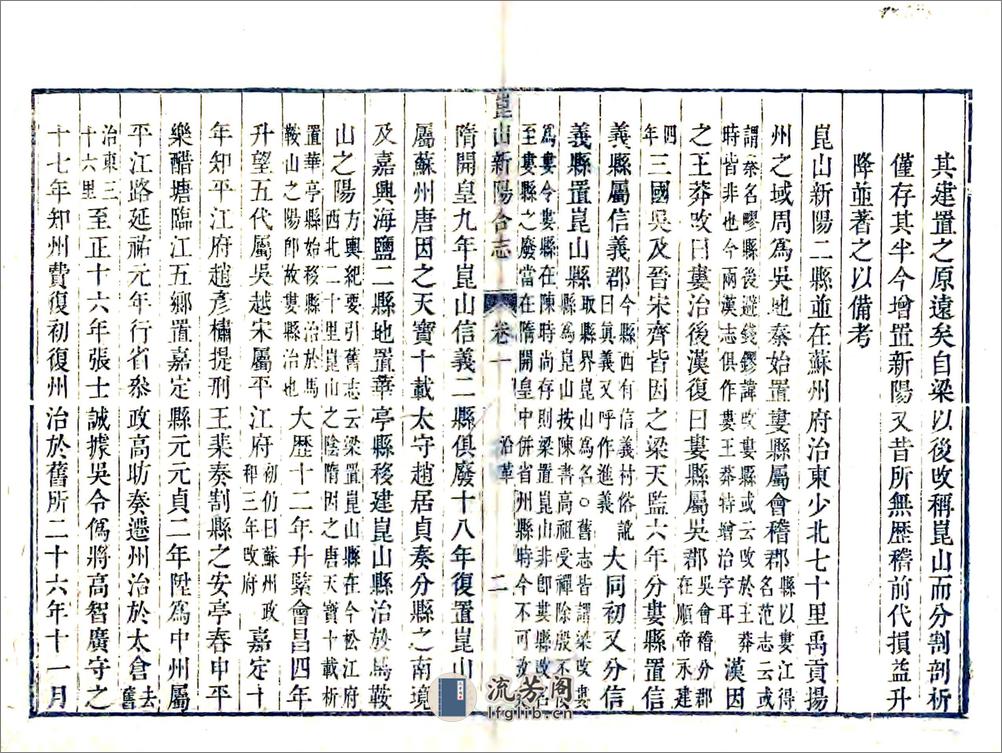 其建置之原遠矣自梁以後改稱崑山而分割剖析
僅存其半今增置新陽又昔所無歷稽前代損益升
降並著之以備考
崑山新陽二縣並在蘇州府治東少北七十里禹貢揚
州之域周為吳地秦始置婁縣屬會稽郡縣以婁江得名范志云或
謂秦名疁縣後避錢鏐諱改婁縣或云改於王莽
時皆非也今兩漢志俱作婁王莽特增治字耳漢因
之王莽改曰婁治後漢復曰婁縣屬吳郡吳會稽分郡在順帝永建
四年三國吳及晉宋齊皆因之梁天監六年分婁縣置信
義縣屬信義郡今縣西有信義村俗訛曰眞義又呼作進義大同初又分信
義縣置崑山縣取縣界崑山為名○舊志皆謂梁改婁縣為崑山按陳書高祖受禪除殷不
為婁令婁縣在陳時尚存則梁置崑山非卽婁縣改名
至婁縣之廢當在隋開皇中併省州縣時今不可攷
崑山新陽合志
卷一
沿革
二
隋開皇九年崑山信義二縣俱廢十八年復置崑山
屬蘇州唐因之天寶十載太守趙居貞奏分縣之南境
及嘉興海鹽二縣地置華亭縣移建崑山縣治於馬鞍
山之陽方輿紀要引舊志云梁置崑山縣在今松江府西北二十里山之陰隋因之唐天寶十載析
置華亭縣始移縣治於馬鞍山之陽卽故婁縣治也大歷十二年升緊會昌四年
升望五代屬吳越宋屬平江府初仍曰蘇州政和三年改府嘉定十
年知平江府趙彥橚提刑王棐奏割縣之安亭春申平
樂醋塘臨江五鄉置嘉定縣元元貞二年陞為中州屬
平江路延祐元年行省參政高昉奏遷州治於太倉去舊
治東三十六里至正十六年張士誠據吳令僞將高智廣守之
十七年知州費復初復州治於舊所二十六年十一月
流芳閣
lfglib.com